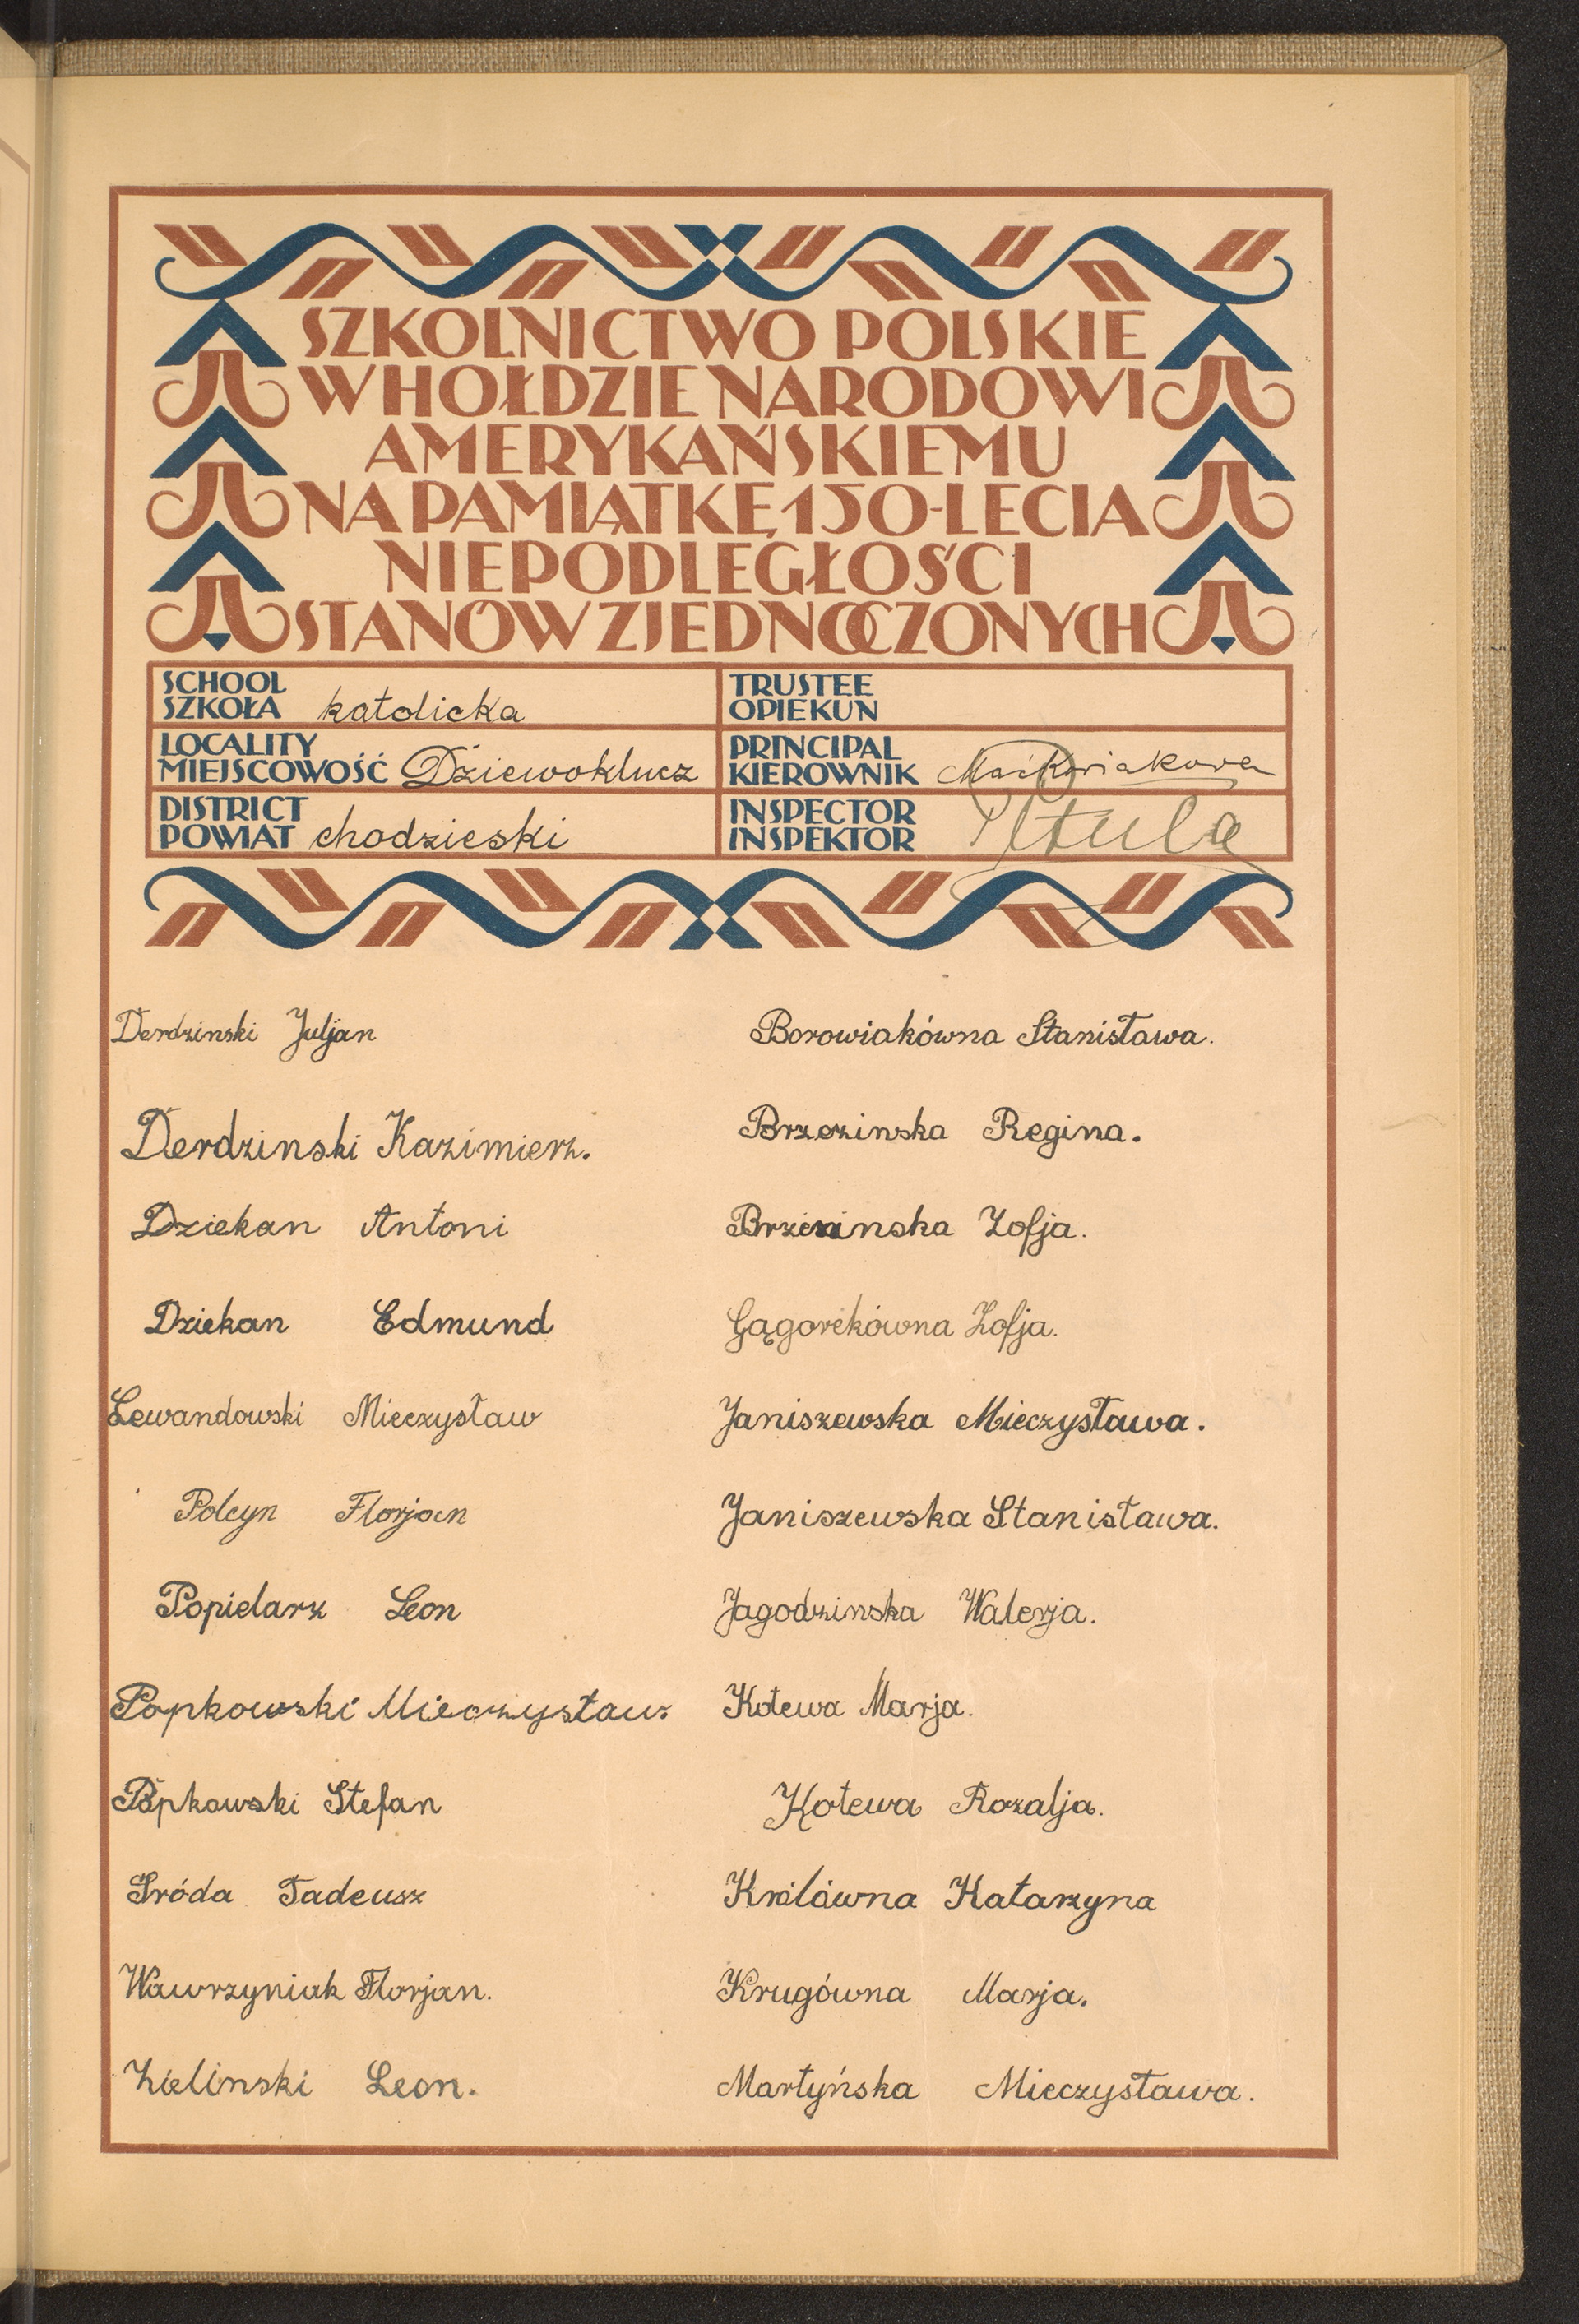 SZKOLNICTWO POLSKIE
W HOŁDZIE NARODOWI
AMERYKAŃSKIEMU
NA PAMIĄTKĘ 150-LECIA
NIEPODLEGŁOŚCI
STANÓW ZJEDNOCZONYCH
SCHOOL
SZKOŁA katolicka
LOCALITY
MIEJSCOWOŚĆ Dziewoklucz
DISTRICT
POWIAT chodzieski
TRUSTEE
OPIEKUN
PRINCIPAL
KIEROWNIK Maćkowiakowa
INSPECTOR
INSPEKTOR
Derdzinski Juljan
Derdzinski Kazimierz.
Dziekan Antoni
Dziekan Edmund
Lewandowski Mieczysław
Polcyn Florjan
Popielarz Leon
Popkowski Mieczysław
Popkowski Stefan
Sróda Tadeusz
Wawrzyniak Florjan.
Zielinski Leon.
Borowiakówna Stanisława.
Brzezinska Regina.
Brzezinska Zofja.
Gągorekówna Zofja.
Janiszewska Mieczysława.
Janiszewska Stanisława.
Jagodzinska Walerja.
Kotewa Marja.
Kotewa Rozalja.
Królówna Katarzyna
Krugówna Marja.
Martyńska Mieczysława.